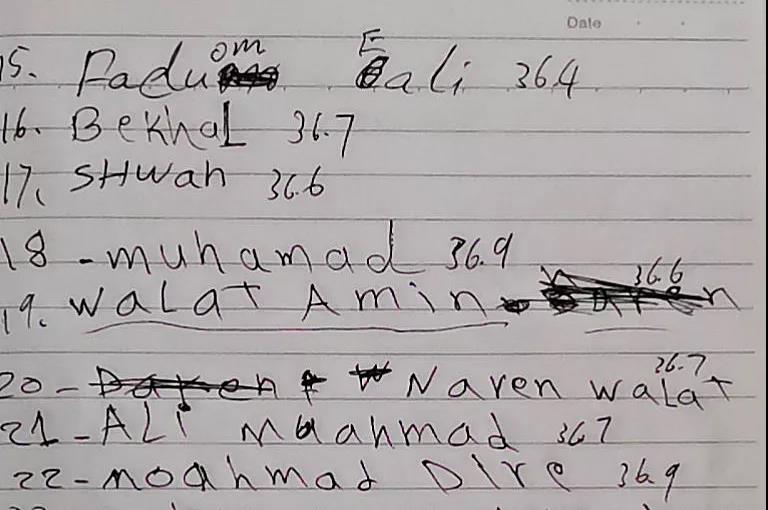 Date
15. Faduom Eali 36.4
16. BeKhaL 36.7
17. SHwan 36.6
18 - muhamad 36.9
19. waLaT Amin 36.6
20 - Naren waLaT 36.7
21 - ALi Maahmad 36.7
22 - moahmad Dire 36.9